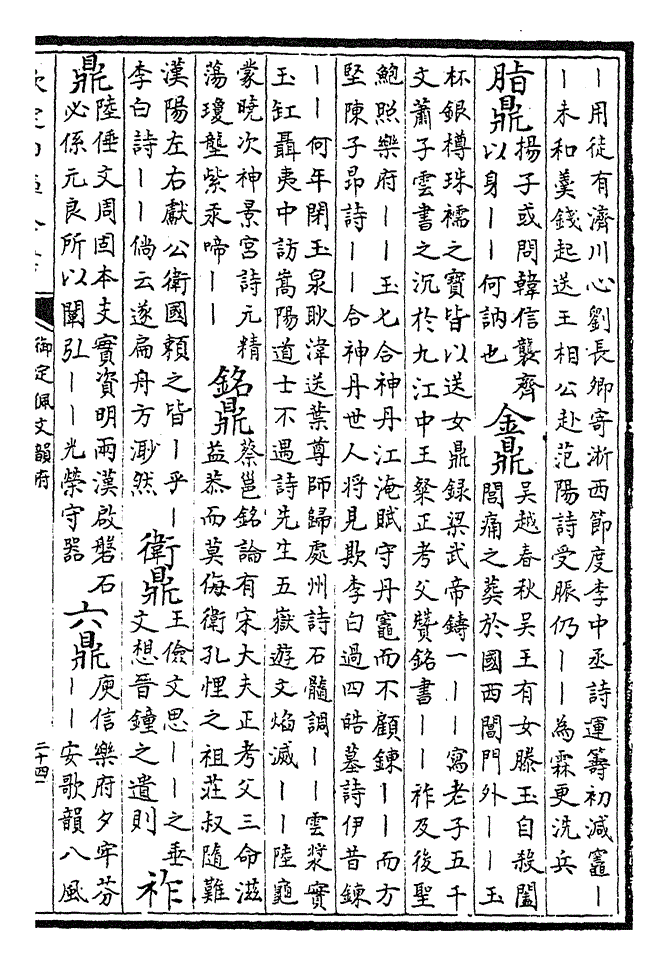 ｜用徒有濟川心劉長卿寄淅西節度李中丞詩運籌初減竈｜
｜未和羹錢起送王相公赴范陽詩受脤仍｜｜為霖更洗兵
脂鼎
揚子或問韓信襲齊
以身｜｜何訥也
金鼎
吳越春秋吳王有女滕玉自殺闔
閭痛之葬於國西閶門外｜｜玉
杯銀樽珠襦之寶皆以送女鼎録梁武帝鑄一｜｜寫老子五千
文蕭子雲書之沉於九江中王粲正考父贊銘書｜｜祚及後聖
鮑照樂府｜｜玉七合神丹江淹賦守丹竈而不顧鍊｜｜而方
堅陳子昂詩｜｜合神丹世人將見欺李白過四皓墓詩伊昔鍊
｜｜何年閉玉泉耿湋送葉尊師歸處州詩石髓調｜｜雲漿實
玉缸聶夷中訪嵩陽道士不遇詩先生五嶽遊文焰滅｜｜陸龜
蒙曉次神景宮詩元精
蕩瓊壟紫汞啼｜｜
銘鼎
蔡邕銘論有宋大夫正考父三命滋
益恭而莫侮衛孔悝之祖莊叔隨難
漢陽左右獻公衛國頼之皆｜乎｜
李白詩｜｜倘云遂扁舟方渺然
衛鼎
王儉文思｜｜之垂
文想晉鐘之遺則
祚
鼎
陸倕文周固本支實資明兩漢啟磐石
必係元良所以闡弘｜｜光榮守器
六鼎
庾信樂府夕牢芬
｜｜安歌韻八風
御定佩文韻府
二十四